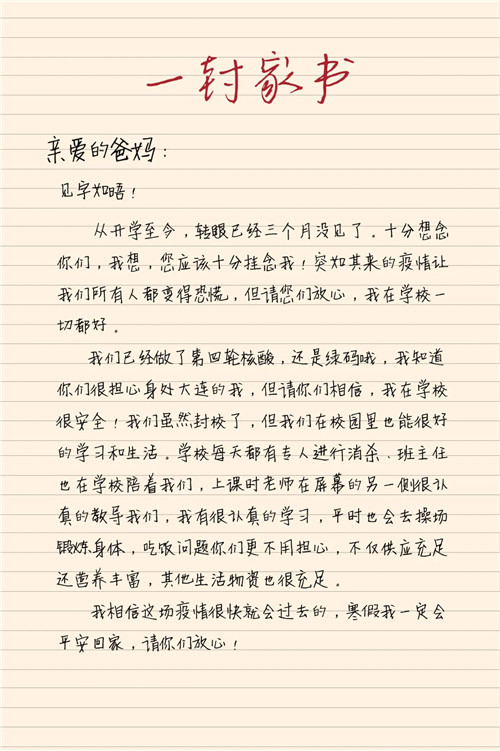 一封家书
亲爱的爸妈：
见字如晤！
从开学至今，转眼已经三个月没见了。十分想念
你们，我想，您应该十分挂念我！突如其来的疫情让
我们所有人都变得恐慌，但请您们放心，我在学校一
切都好。
我们已经做了第四轮核酸，还是绿码哦，我知道
你们很担心身处大连的我，但请你们相信，我在学校
很安全！我们虽然封校了，但我们在校园里也能很好
的学习和生活。学校每天都有专人进行消杀、班主任
也在学校陪着我们，上课时老师在屏幕的另一侧很认
真的教导我们，我有很认真的学习，平时也会去操场
锻炼身体，吃饭问题你们更不用担心，不仅供应充足
还营养丰富，其他生活物资也很充足。
我相信这场疫情很快就会过去的，寒假我一定会
平安回家，请你们放心！